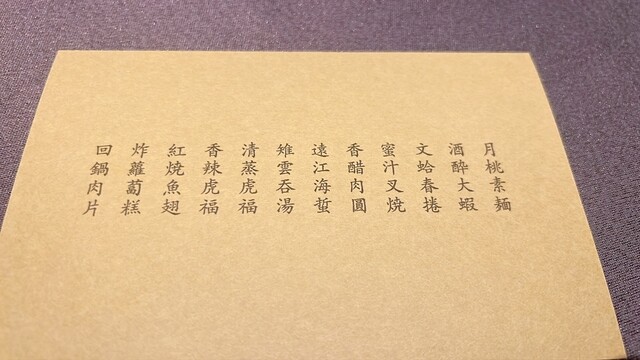 月桃素麺
酒酔大蝦
文蛤春捲
蜜汁叉焼
香醋肉圓
遠江海蜇
雉雲呑湯
清蒸虎福
香辣虎福
紅焼魚翅
炸蘿蔔糕
回鍋肉片